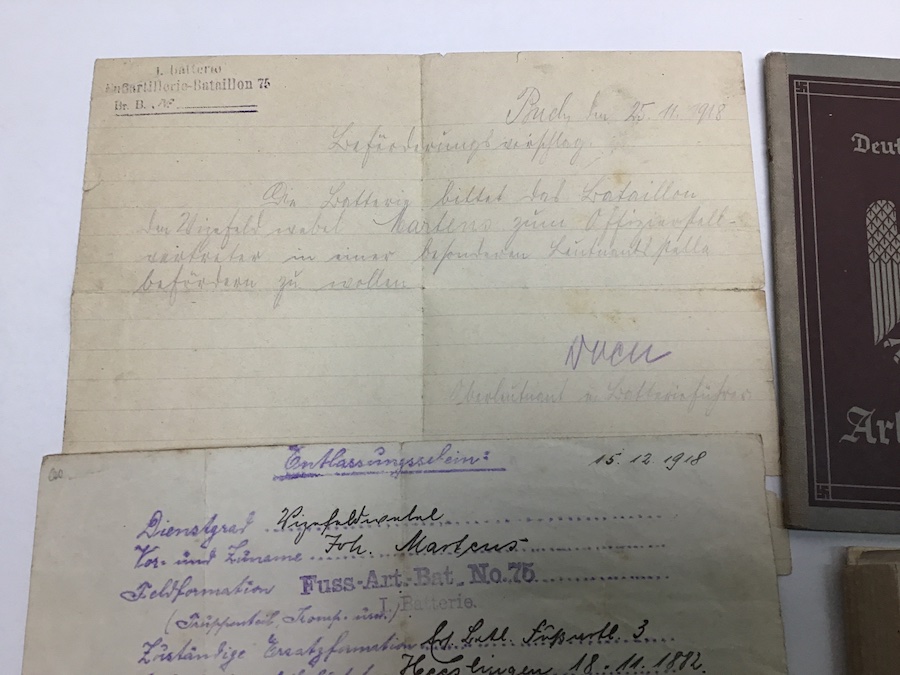 1. Batterie
Fußartillerie-Bataillon 75
Br. B.
Buch, den 25. 11. 1918
Beförderungsvorschlag.
Die Batterie bittet das Bataillon
den Vizefeldwebel Martens zum Offizierstell-
vertreter in einer besonderen Leutnantsstelle
befördern zu wollen
Oberleutnant u. Batterieführer
Entlassungsschein:
15.12.1918
Dienstgrad Vizefeldwebel
Vor- und Zuname Joh. Martens
Feldformation Fuss-Art.-Bat. No. 75
I. Batterie.
(Truppenteil, Komp. usw.)
Zuständige Ersatzformation Ers. Batl. Fußartl. 3
Heeslingen 18-11.1882.
Deut
Ar